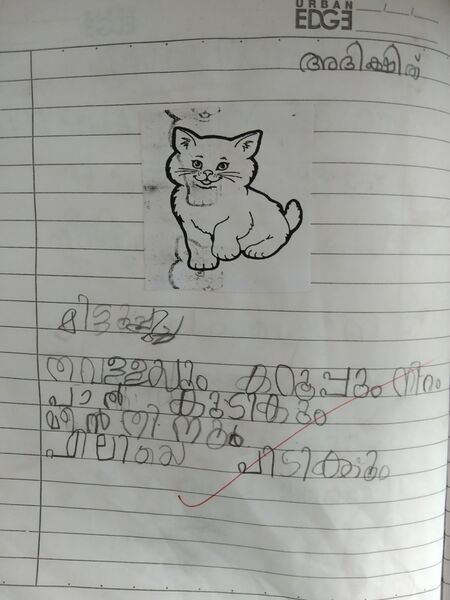 URBAN
EDGE
അദിക്ഷിത്
തവള്ളയും കറുപ്പും നിറം
പാൽ കുടികും
മീൻ തിന്നും
എലിയെ പിടിക്കും